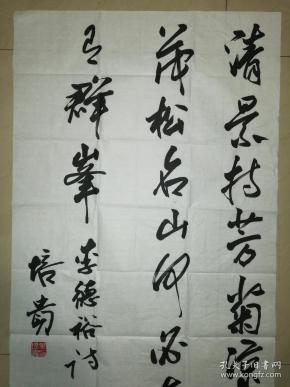 清景持芳菊凉
茂松名山何必去
有群峯
李德裕诗
培
孔夫子旧书网